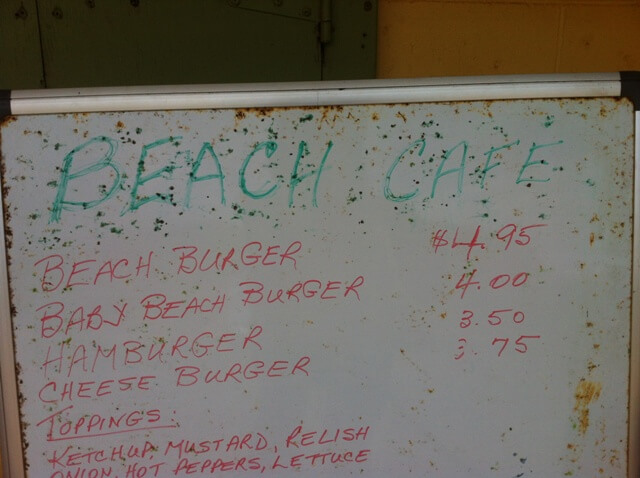 BEACH CAFE
BEACH BURGER $4.95
BABY BEACH BURGER 4.00
HAMBURGER 3.50
CHEESE BURGER 3.75
TOPPINGS:
KETCHUP, MUSTARD, RELISH
ONION, HOT PEPPERS, LETTUCE